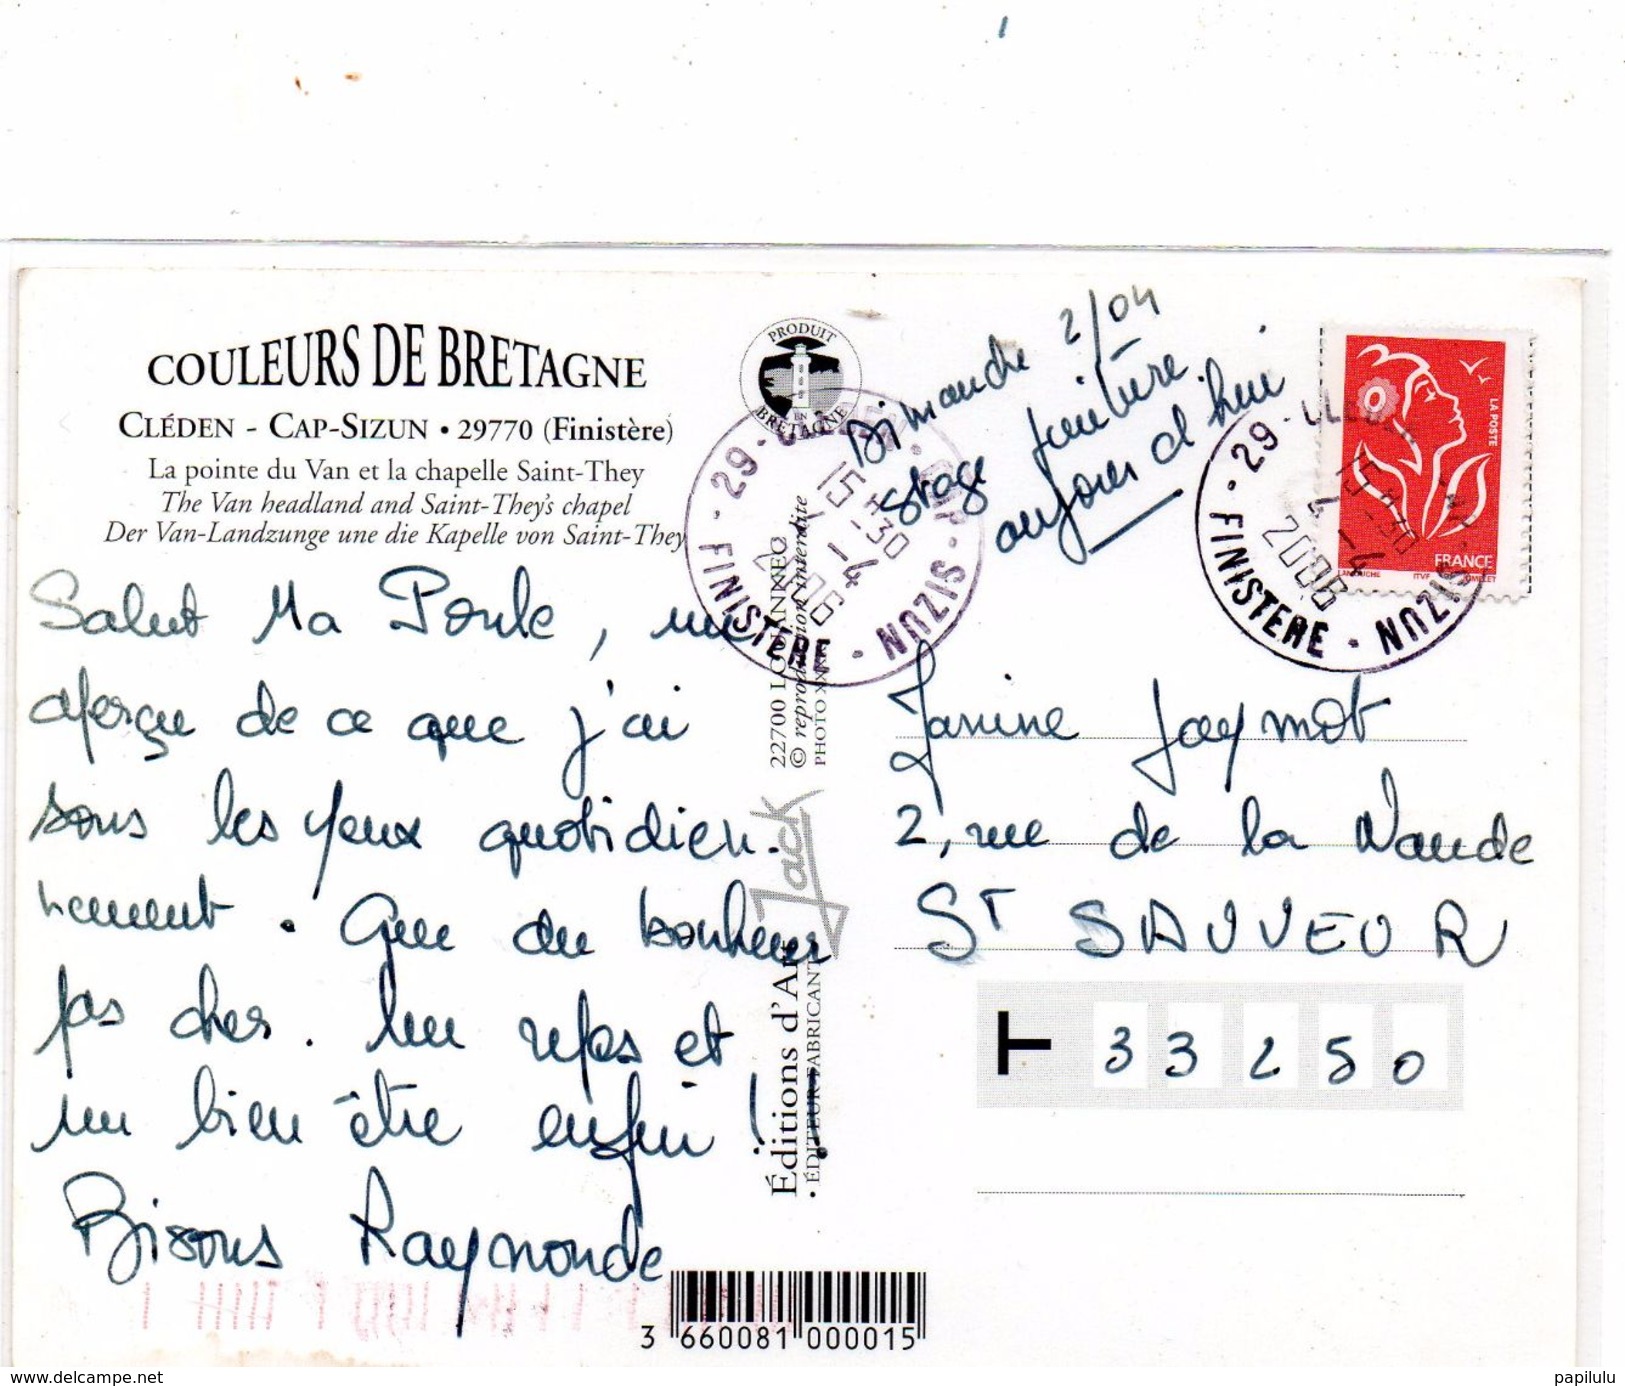 COULEURS DE BRETAGNE
CLÉDEN - CAP-SIZUN • 29770 (Finistère)
La pointe du Van et la chapelle Saint-They
The Van headland and Saint-They's chapel
Der Van-Landzunge une die Kapelle von Saint-They
Salut Ma Poule, un
aperçu de ce que j'ai
sous les yeux quotidien-
nement. Que du bonheur
pas cher. Un repos et
un bien-être enfin !!
Bisous Raymonde
PRODUIT
EN
BRETAGNE
22700 LOUANNEC
© reproduction interdite
PHOTO XXX
Jack
Éditions d'Art
• ÉDITEUR-FABRICANT
3 660081 000015
Dimanche 2/04
stage peinture
aujourd'hui
29 - CLEDEN - CAP - SIZUN -
15 H
-30
4 - 4
2006
FINISTERE
LA POSTE
FRANCE
LAMOUCHE ITVF GMELET
29 - CLEDEN - CAP - SIZUN -
15 H
-30
4 - 4
2006
FINISTERE
Janine Jaymot
2, rue de la Waude
ST SAUVEUR
33250
delcampe.net
papilulu